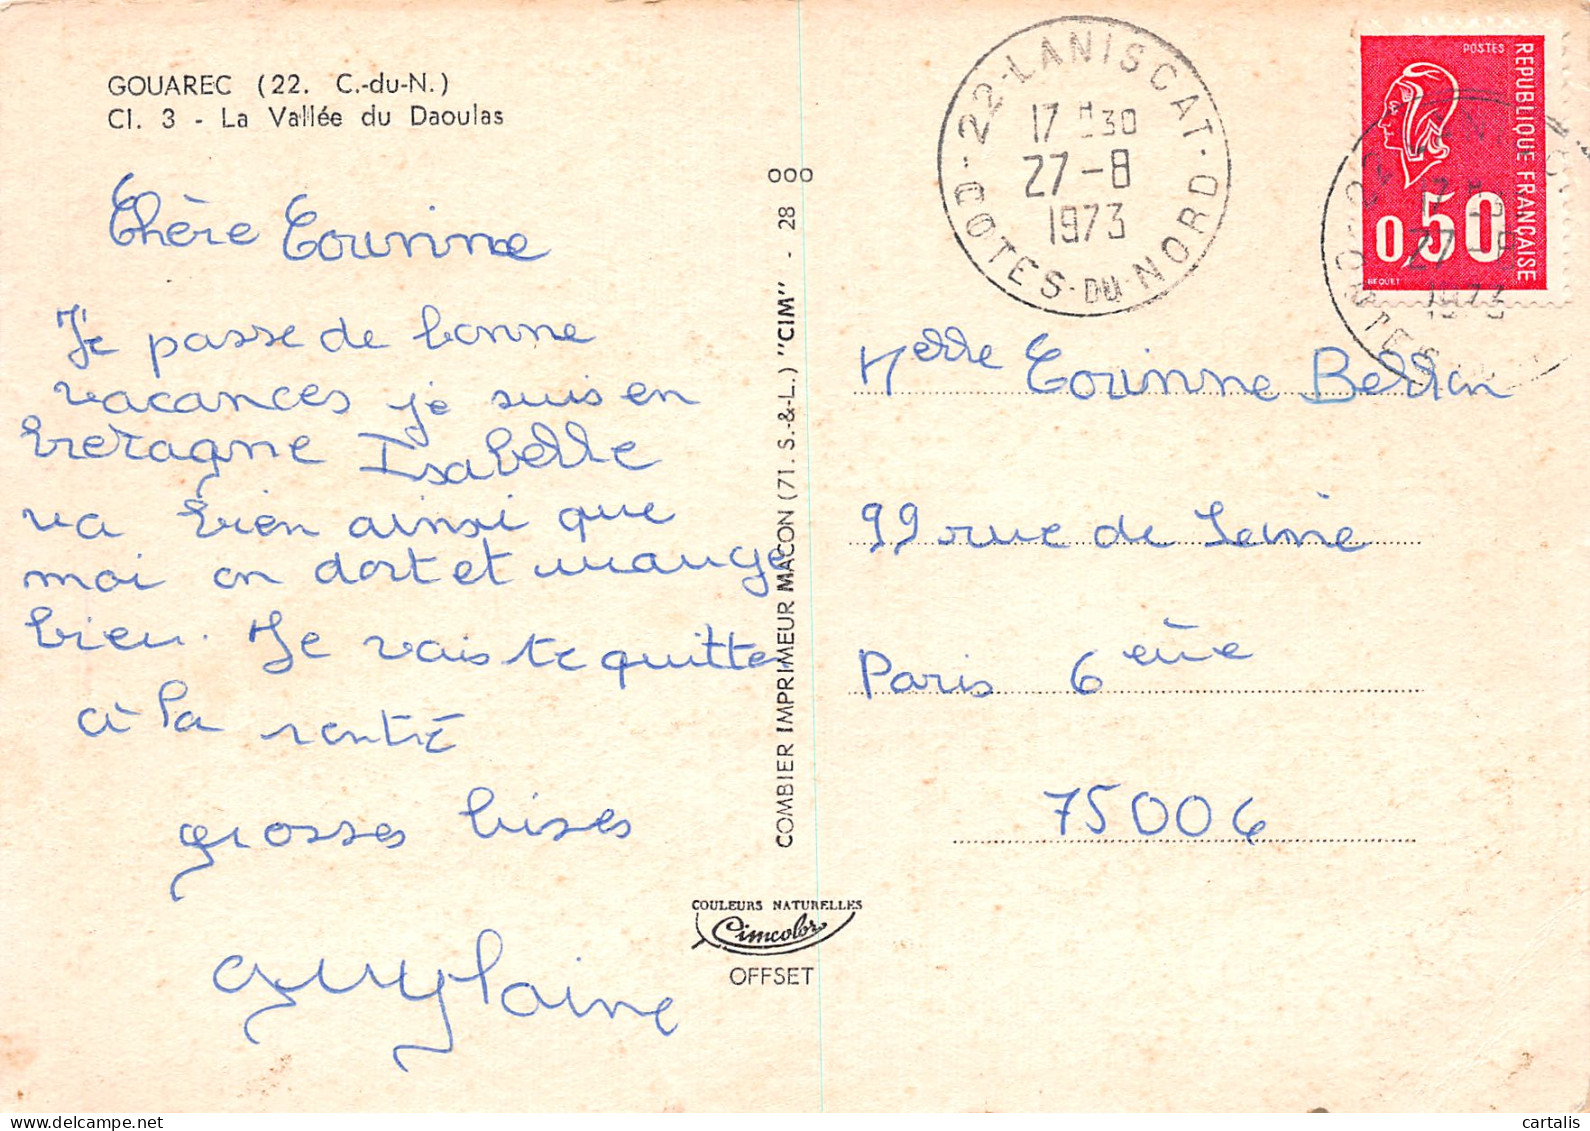 GOUAREC (22. C.-du-N.)
Cl. 3 - La Vallée du Daoulas
Chère Corinne
Je passe de bonne
vacances je suis en
bretagne Isabelle
va bien ainsi que
moi on dort et mange
bien. Je vais te quitter
à la rentré
grosses bises
Guylaine
000
COMBIER IMPRIMEUR MACON (71. S.-&-L.) "CIM" - 28
COULEURS NATURELLES
Cimcolor
OFFSET
22-LANISCAT
17 H 30
27-8
1973
COTES-DU-NORD
POSTES
REPUBLIQUE FRANÇAISE
0,50
BEQUET
27-8
1973
Melle Corinne
99 rue de Seine
Paris 6 eme
75006
cartalis
www.delcampe.net